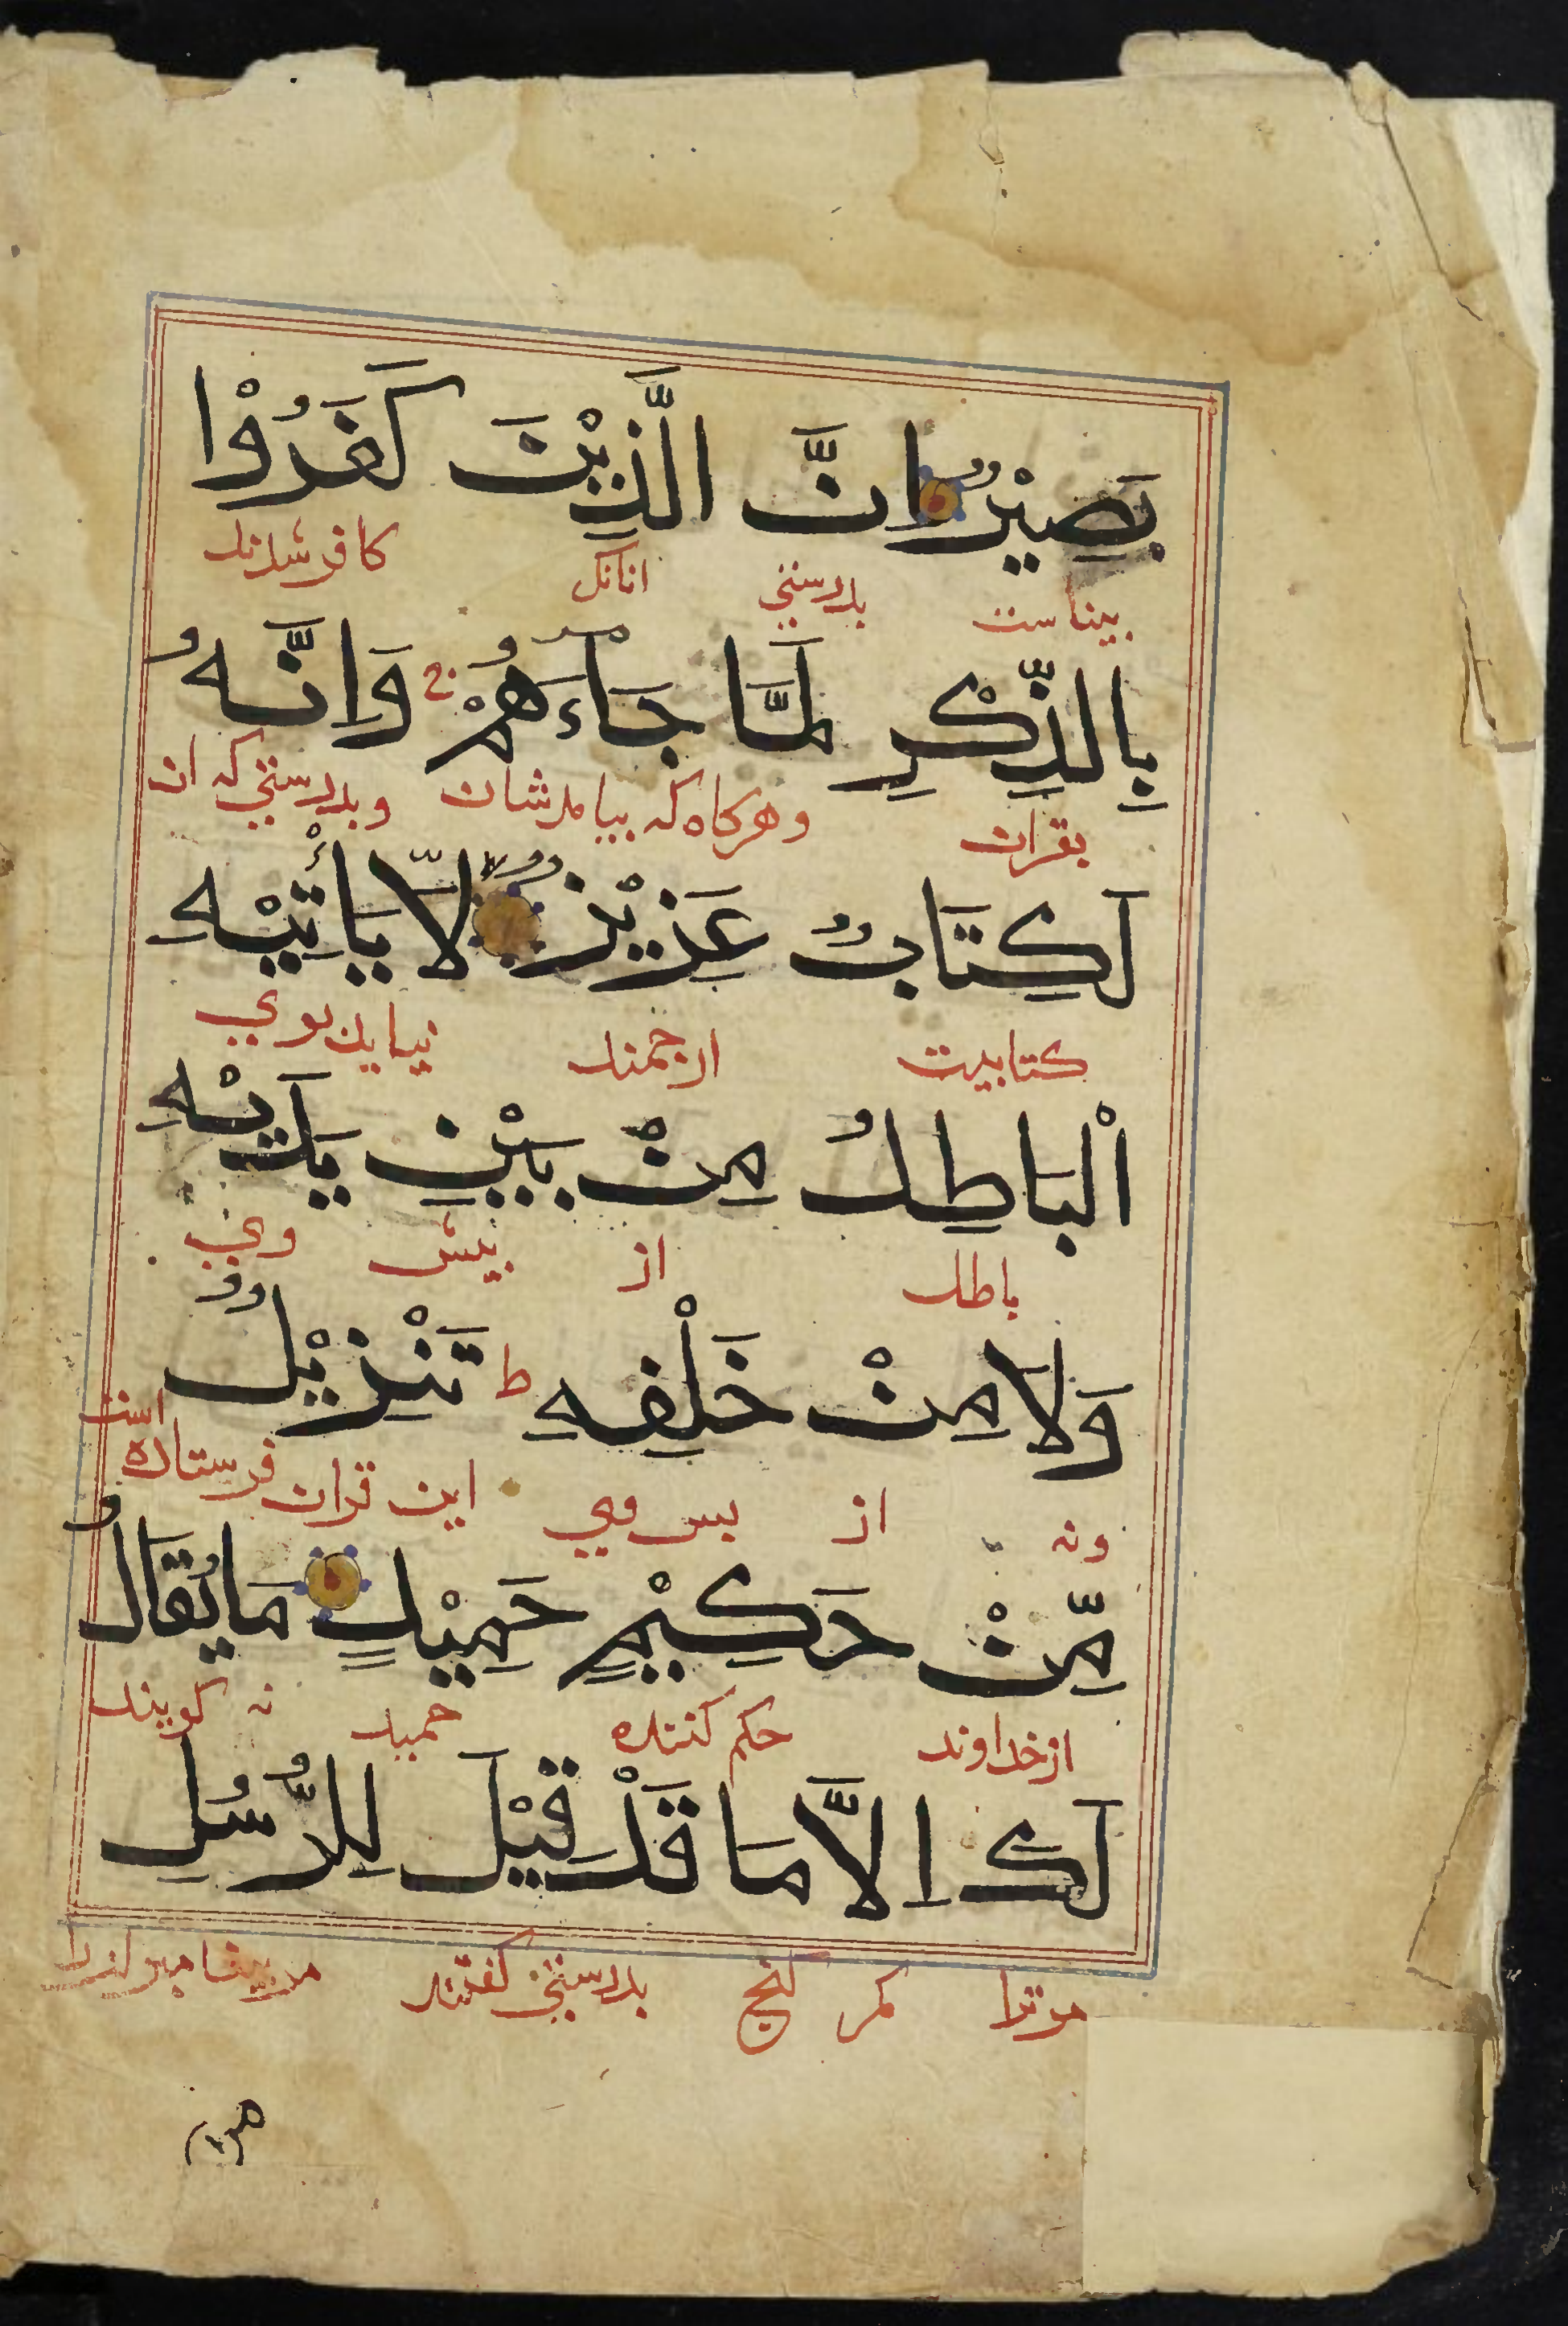 بَصِيْرٌ اِنَّ الَّذِيْنَ كَفَرُوْا
بیناست بدرستی انانک کافر شدند
بِالذِّكْرِ لَمَّا جَاۤءَهُمْ ج وَاِنَّهُ
بقران وهرکاه که بیامدشان وبدرستی که ان
لَكِتَابٌ عَزِيْزٌ لا لَّا يَأْتِيْهِ
کتابیت ارجمند نیاید بوی
الْبَاطِلُ مِنْ بَيْنِ يَدَيْهِ
باطل از پیش وی
وَلَا مِنْ خَلْفِهِ ط تَنْزِيْلٌ
ونه از پس وی این قران فرستاده است
مِّنْ حَكِيْمٍ حَمِيْدٍ مَا يُقَالُ
ازخداوند حکم کننده حمید نه کویند
لَكَ اِلَّا مَا قَدْ قِيْلَ لِلرُّسُلِ
مرترا مکر انج بدرستی کفتند مر